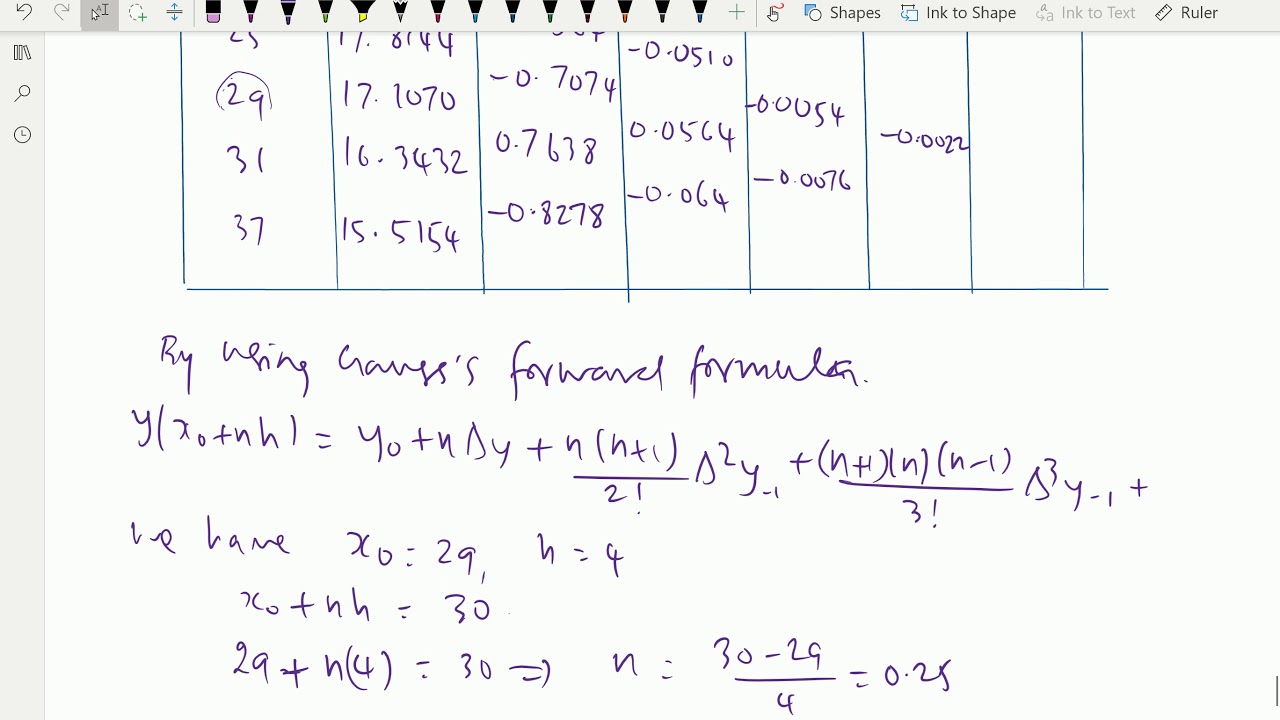 Shapes Ink to Shape Ink to Text Ruler
25 17.8144
-0.0510
29 17.1070 -0.7074
-0.0054
31 16.3432 0.7638 0.0564 -0.0022
-0.064 -0.0076
37 15.5154 -0.8278
By using Gauss's forward formula.
y(x₀+nh) = y₀+nΔy + n(n+1)/2! Δ²y₋₁ + (n+1)(n)(n-1)/3! Δ³y₋₁ +
we have x₀ = 29, h = 4
x₀+nh = 30
29 + n(4) = 30 => n = 30-29/4 = 0.25